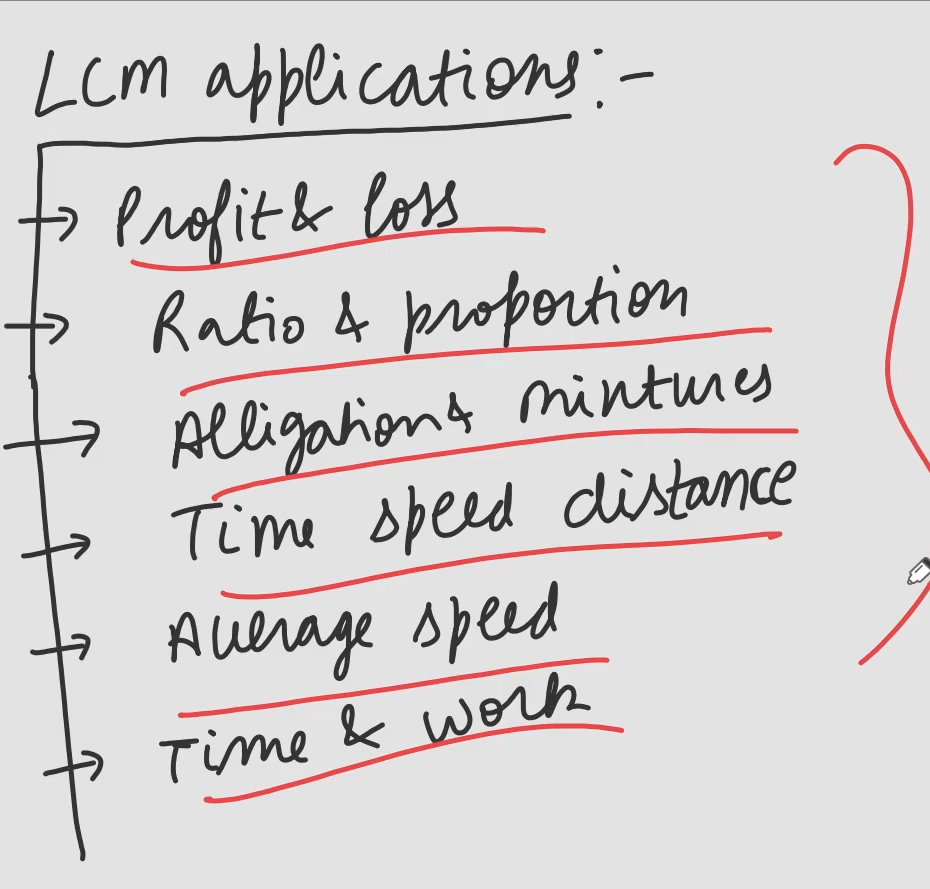 LCM applications:-
→ Profit & loss
→ Ratio & proportion
→ Alligation & mintures
→ Time speed distance
→ Average speed
→ Time & work